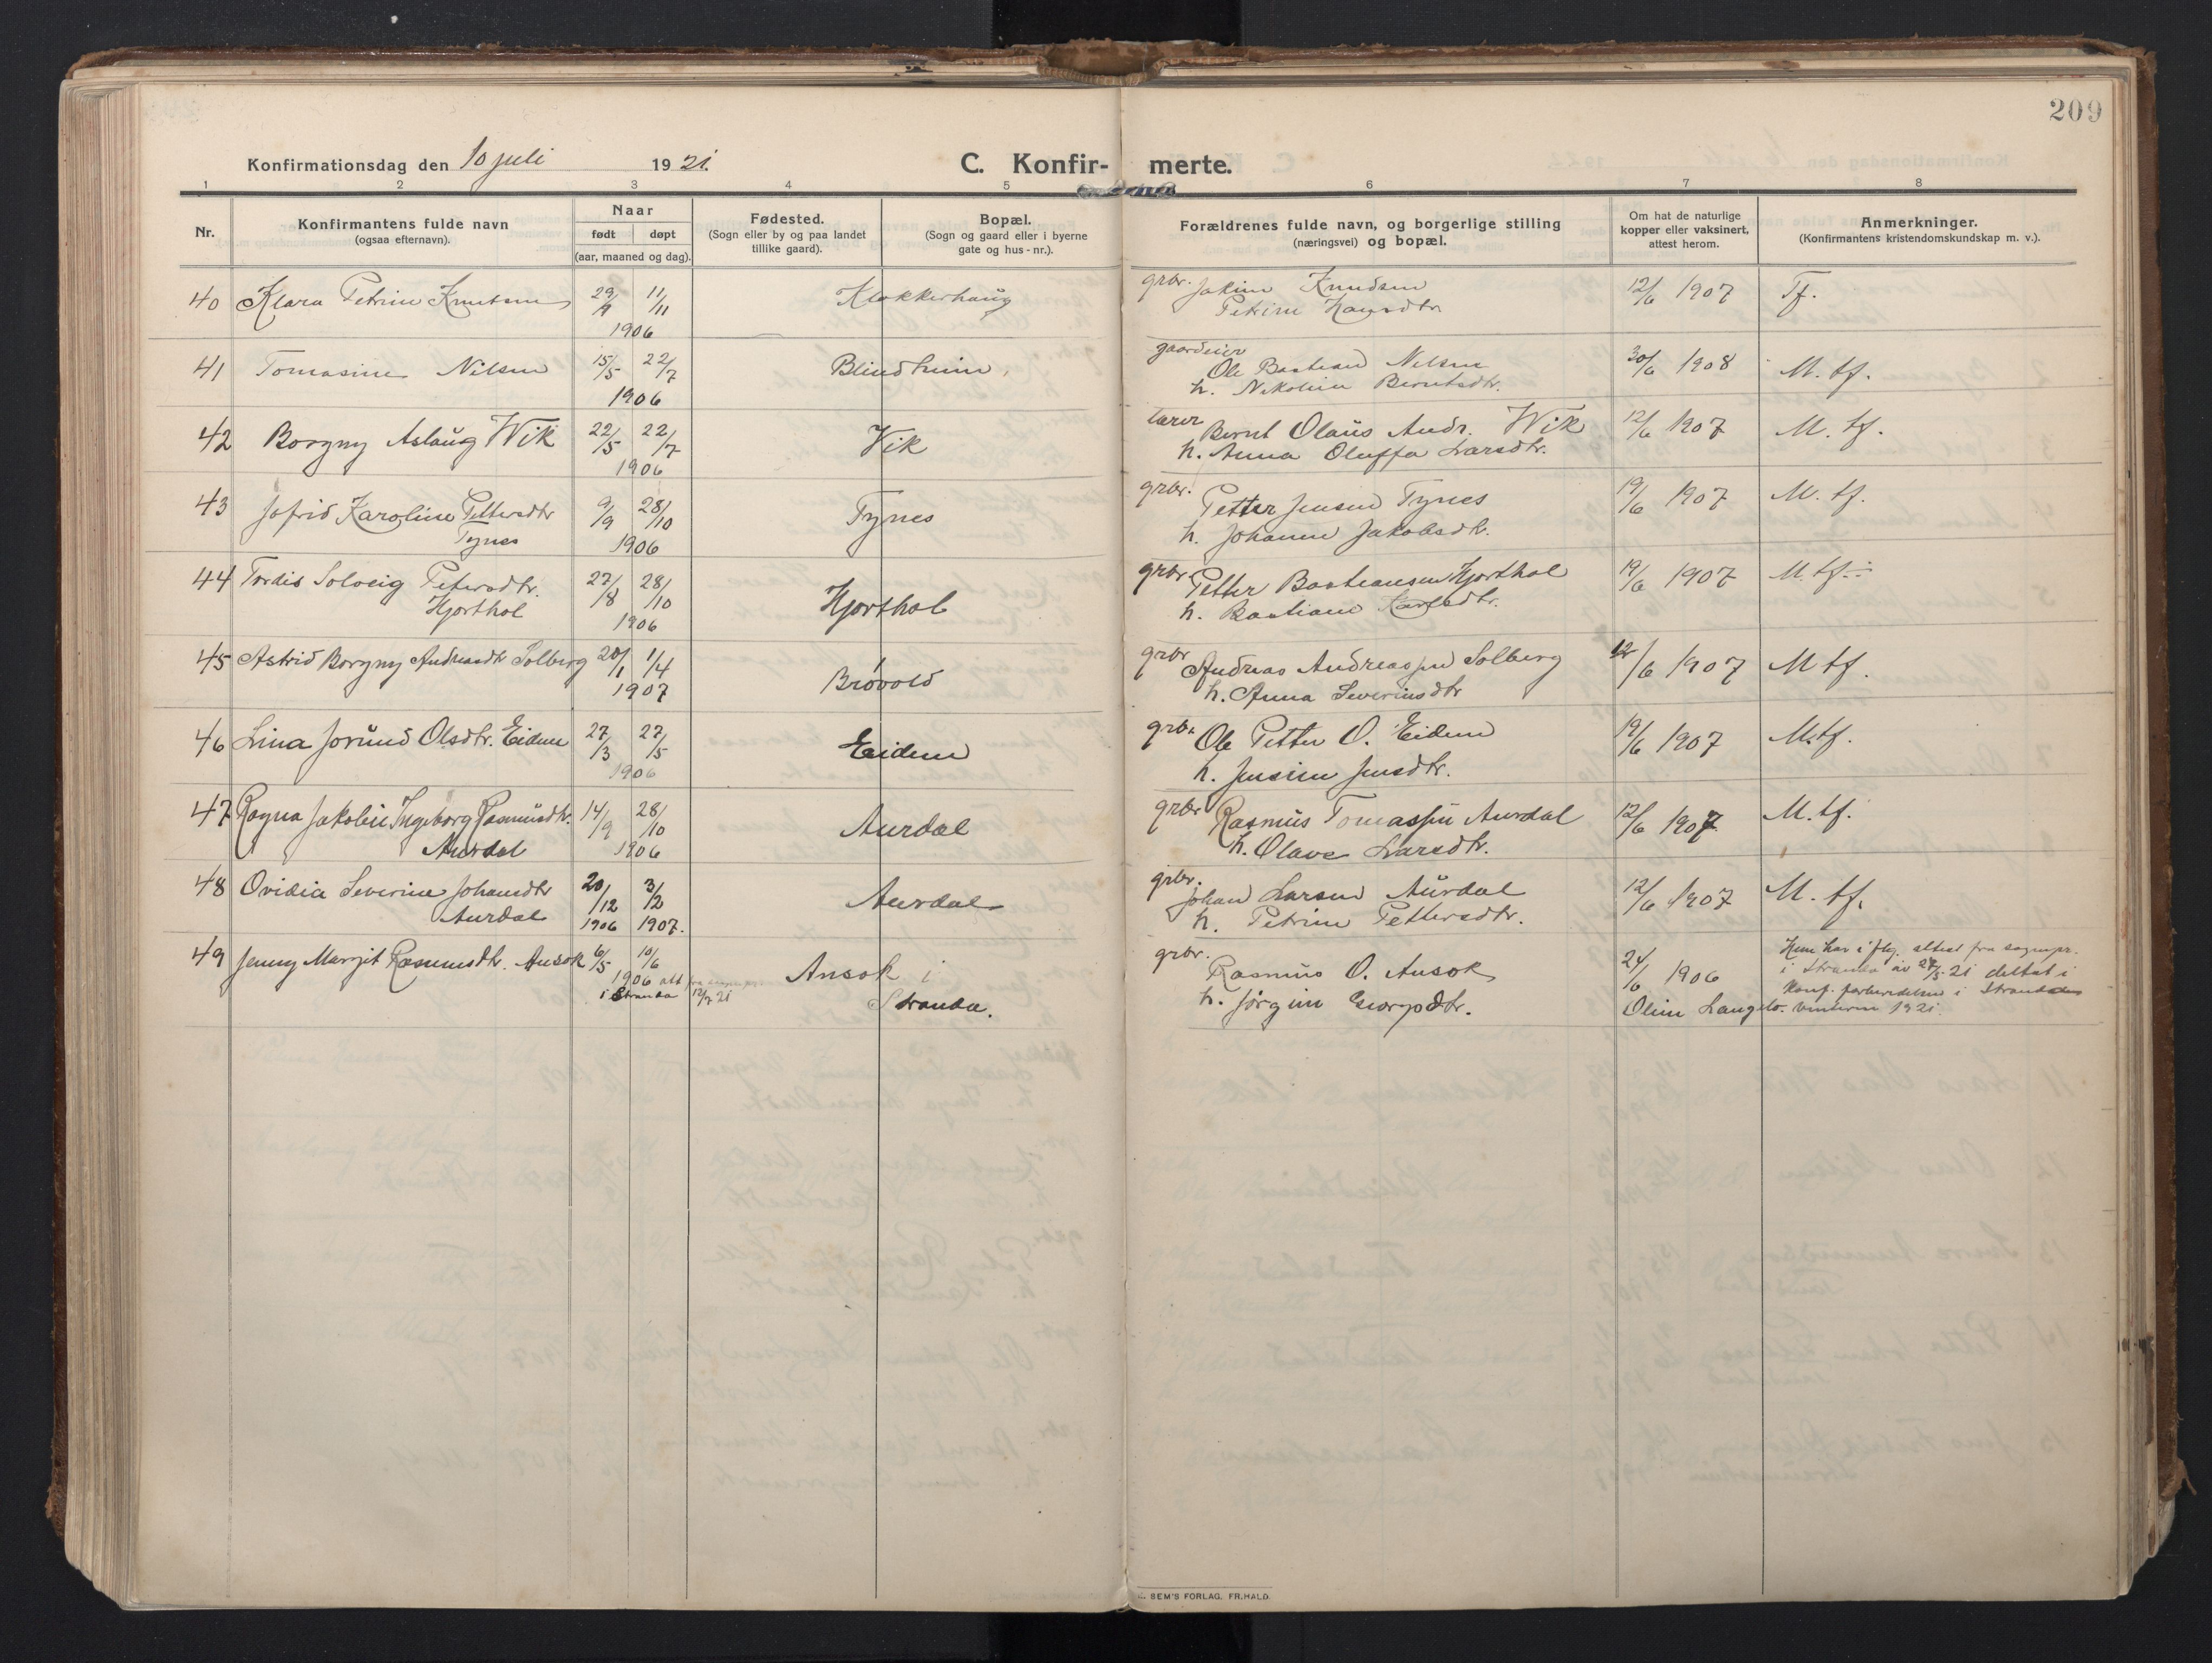 209
Konfirmationsdag den 10 juli 1921.
C. Konfir- merte.
1 2 3 4 5 6 7 8
Nr.
Konfirmantens fulde navn
(ogsaa efternavn).
Naar
født døpt
(aar, maaned og dag).
Fødested.
(Sogn eller by og paa landet
tillike gaard).
Bopæl.
(Sogn og gaard eller i byerne
gate og hus - nr.).
Forældrenes fulde navn, og borgerlige stilling
(næringsvei) og bopæl.
Om hat de naturlige
kopper eller vaksinert,
attest herom.
Anmerkninger.
(Konfirmantens kristendomskundskap m. v.).
40 Klara Petrine Knutsen 29/9 11/11 Klokkerhaug grbr. Jakim Knudsen 12/6 1907 Tf.
1906 Petrine Hansdtr
41 Tomasine Nilsen 15/5 22/7 Blindheim gaardeier Ole Bastian Nilsen 30/6 1908 M. tf.
1906 h. Nikoline Berntsdtr.
42 Borgny Aslaug Wik 22/5 22/7 Vik lærer Bernt Olaus Andr. Wik 12/6 1907 M. tf.
1906 h. Anna Oluffa Larsdtr.
43 Jofrid Karoline Pettersdtr 9/9 28/10 Tynes grbr. Petter Jensen Tynes 19/6 1907 M. tf.
Tynes 1906 h. Johanne Jakobsdtr.
44 Tordis Solveig Petersdtr. 27/8 28/10 Hjorthol grbr Petter Bastiansen Hjorthol 19/6 1907 M. tf.
Hjorthol 1906 h. Bastiane Karlsdtr.
45 Astrid Borgny Andreasdtr Solberg 20/1 1/4 Brøvold grbr Andreas Andreassen Solberg 12/6 1907 M tf.
1907 h. Anna Severinsdtr
46 Lina Jorund Olsdtr. Eidem 27/3 27/5 Eidem grbr. Ole Petter O. Eidem 19/6 1907 M. tf.
1906 h. Jensine Jensdtr.
47 Ragna Jakobie Ingeborg Rasmusdtr. 14/9 28/10 Aurdal grbr Rasmus Tomassen Aurdal 12/6 1907 M. tf.
Aurdal 1906 h. Olave Larsdtr.
48 Ovidia Severine Johansdtr 20/12 3/2 Aurdal grbr. Johan Larsen Aurdal 12/6 1907 M. tf.
Aurdal 1906 1907. h. Petrine Pettersdtr.
49 Jenny Margit Rasmusdtr. Ansok 6/5 10/6 Ansok i grbr. Rasmus O. Ansok 24/6 1906 Hun har iflg. attest fra sognepr.
1906 att fra sognepr. i Stranda av 27/5 21 deltat i
i Stranda 12/7 21 Stranda. h. Jørgine Georgsdtr. Konf. forberedelsen i Stranda
Oline Langlo. vinteren 1921.
SEM'S FORLAG, FR.HALD.